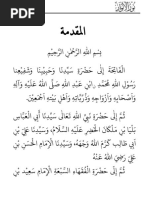 المقدمة
بِسْمِ اللَّهِ الرَّحْمَنِ الرَّحِيْمِ
الْفَاتِحَةَ إِلَى حَضْرَةِ سَيِّدِنَا وَحَبِيْبِنَا وَشَفِيْعِنَا
رَسُوْلِ اللَّهِ مُحَمَّدِ بْنِ عَبْدِ اللَّهِ صَلَّى اللَّهُ عَلَيْهِ وَآلِهِ
وَأَصْحَابِهِ وَأَزْوَاجِهِ وَذُرِّيَّاتِهِ وَأَهْلِ بَيْتِهِ أَجْمَعِيْنَ.
إِلَى حَضْرَةِ نَبِيِّ اللَّهِ تَعَالَى سَيِّدِنَا أَبِي الْعَبَّاسِ
بَلْيَا بْنِ مَلْكَانَ الْخَضِرِ عَلَيْهِ السَّلَامُ، وَسَيِّدِنَا عَلِيِّ بْنِ
أَبِي طَالِبٍ كَرَّمَ اللَّهُ وَجْهَهُ، وَسَيِّدِنَا الْإِمَامِ الْحَسَنِ بْنِ
عَلِيٍّ رَضِيَ اللَّهُ عَنْهُ
إِلَى حَضْرَةِ الْفُقَهَاءِ السَّبْعَةِ الْإِمَامِ سَعِيْدِ بْنِ